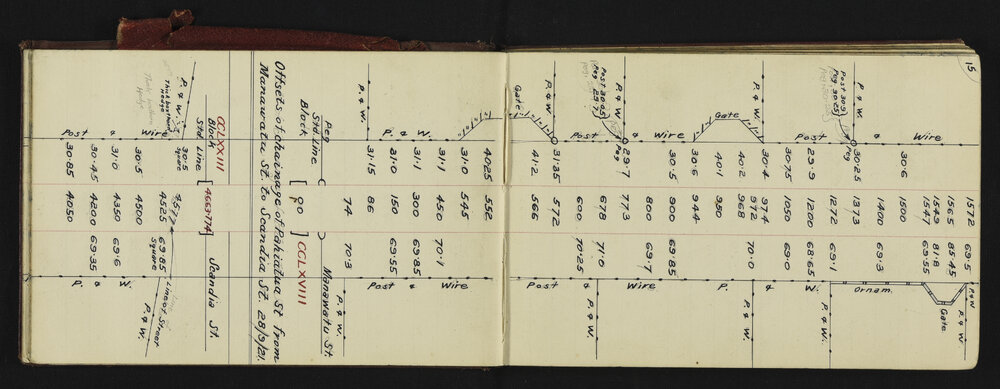 15
1572 69.5 P & W
1565 85.45
1549 81.8
1547 69.55
Gate
& Wire
30.6 1500
Ornam.
1400 69.3
30.25 1373
Peg
Post 30.3
Peg 30.25
P. & W.
1272 69.1
P. & W.
29.9 1200 68.65
30.75 1050 69.0
Post
P. & W.
30.4 974
972 70.0
P. & W.
40.2 968
Gate
40.1 950
30.6 944
30.5 900 69.85
800 69.7
P. & W.
29.7 773
Peg
Post 30.45
Peg 29.7
678 71.0
Post & Wire
600 70.25
31.35 572
41.2 566
Gate
40.25 552
31.0 545
31.1 450 70.1
P. & W.
31.1 300 69.85
Post & Wire
31.0 150 69.55
31.15 86
P. & W.
74 70.3
P. & W.
Peg
Std Line
Manawatu St.
Block [ 90 ] CCLXVIII
Offsets of chainage of Pahiatua St from
Manawatu St. to Scandia St. 28/9/21.
CCLXXIII
Block
Std Line [ 4663774 ] Scandia St.
P. & W.
30.5
Square
Thick barberry
Hedge
4577
4525 69.85
Square
Limbot Street
P. & W.
30.5 4500
31.0 4350 69.6
30.45 4200 69.35
30.85 4050
Post & Wire
P. & W.